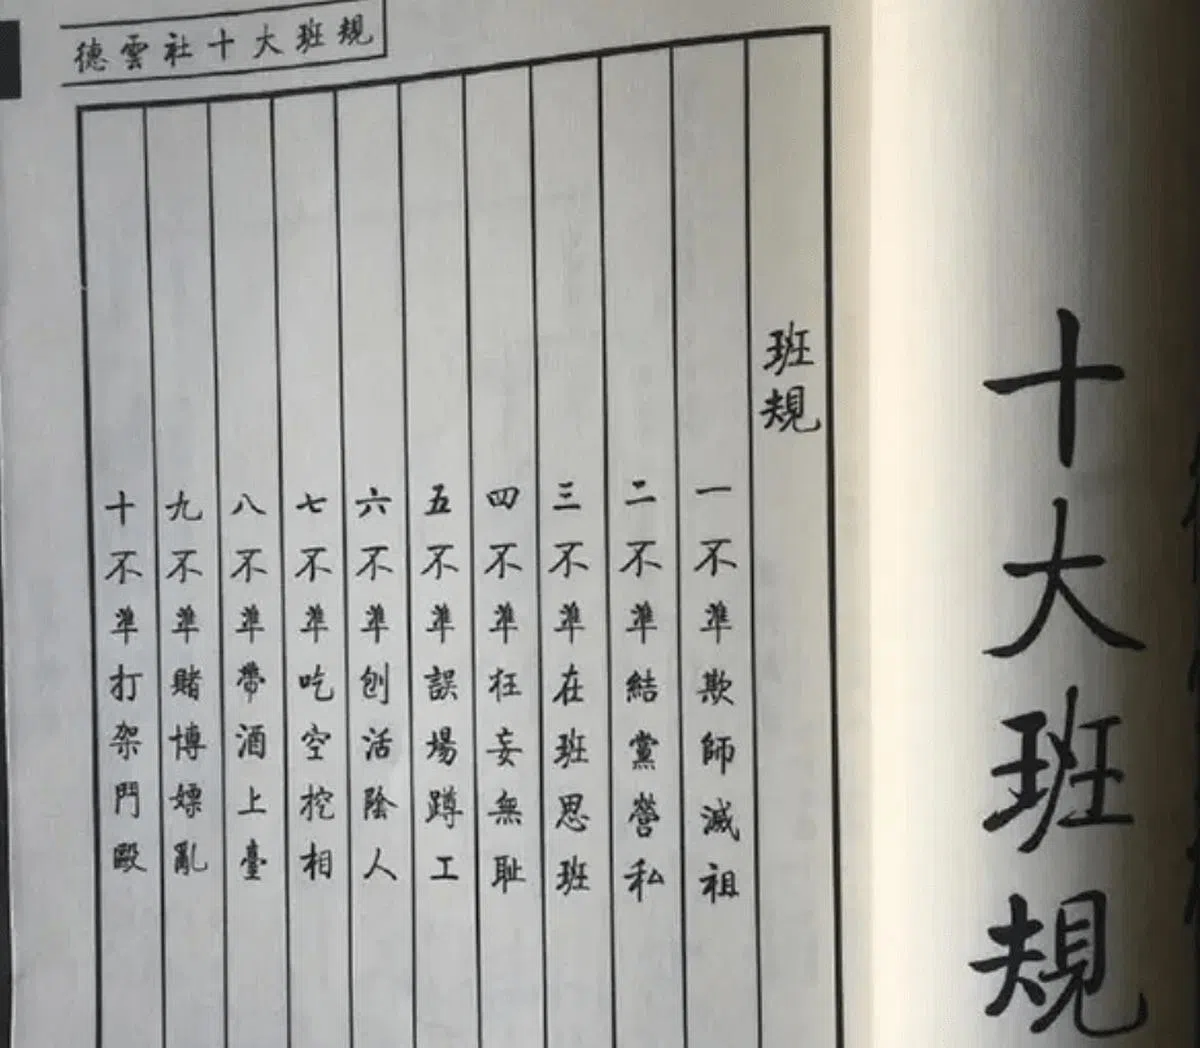 德雲社十大班規
十大班規
班規
一不準欺師滅祖
二不準結黨營私
三不準在班思班
四不準狂妄無恥
五不準誤場蹲工
六不準刨活陰人
七不準吃空挖相
八不準帶酒上臺
九不準賭博嫖亂
十不準打架鬥毆